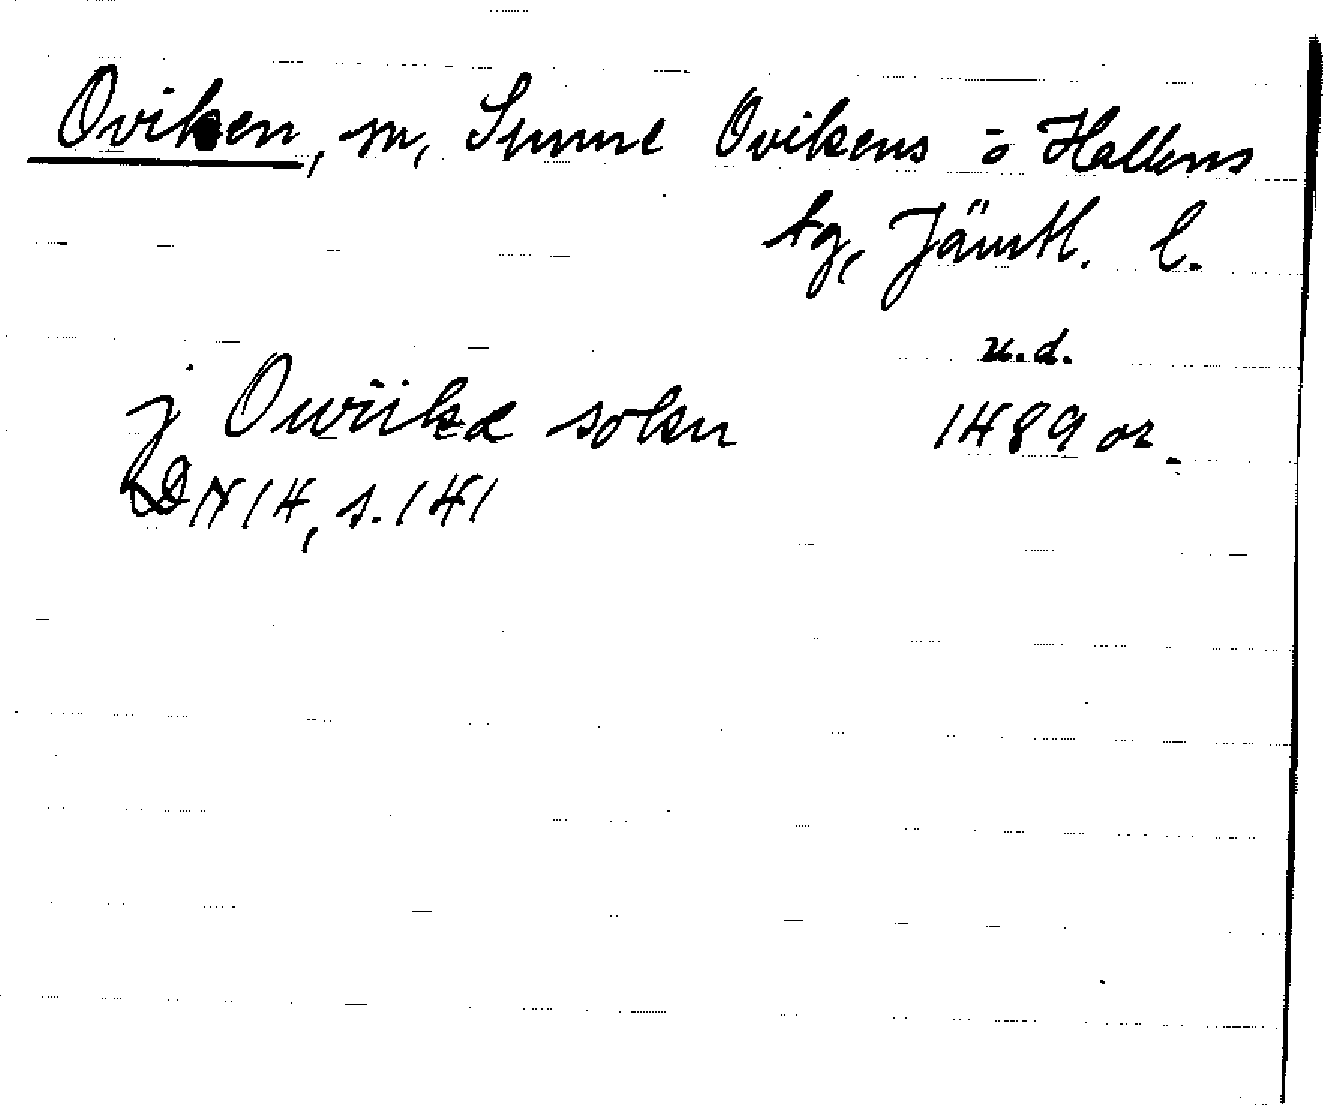 Oviken, sn, Sunne Ovikens o Hallens
tg, Jämtl. l.
u.d.
j Owiikæ sokn 1489 or.
DN 14, s. 141